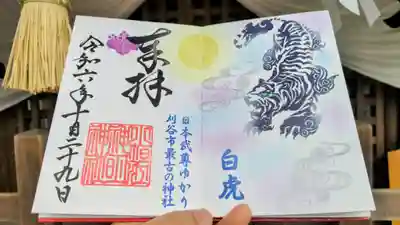 奉拝
日本武尊ゆかり
刈谷市最古の神社
白虎
令和六年十月二十九日